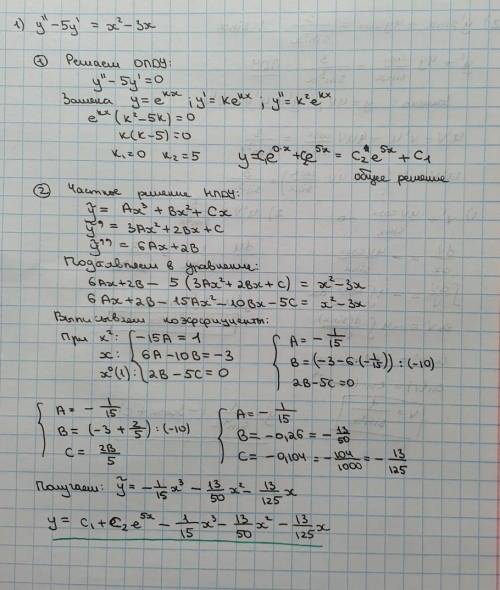 1) y'' - 5y' = x² - 3x
① Решаем ОЛДУ:
y'' - 5y' = 0
Замена y = e^{kx}; y' = ke^{kx}; y'' = k²e^{kx}
e^{kx}(k² - 5k) = 0
k(k - 5) = 0
k₁ = 0 k₂ = 5 y = C₁e^{0·x} + C₂e^{5x} = C₂e^{5x} + C₁
общее решение
② Частное решение НЛДУ:
ỹ = Ax³ + Bx² + Cx
ỹ' = 3Ax² + 2Bx + C
ỹ'' = 6Ax + 2B
Подставляем в уравнение:
6Ax + 2B - 5(3Ax² + 2Bx + C) = x² - 3x
6Ax + 2B - 15Ax² - 10Bx - 5C = x² - 3x
Выписываем коэффициенты:
При x²: { -15A = 1 { A = -1/15
x: { 6A - 10B = -3 { B = (-3 - 6·(-1/15)) : (-10)
x⁰(1): { 2B - 5C = 0 { 2B - 5C = 0
{ A = -1/15 { A = -1/15
{ B = (-3 + 2/5) : (-10) { B = -0,26 = -13/50
{ C = 2B/5 { C = -0,104 = -104/1000 = -13/125
Получаем: ỹ = -1/15x³ - 13/50x² - 13/125x
y = C₁ + C₂e^{5x} - 1/15x³ - 13/50x² - 13/125x